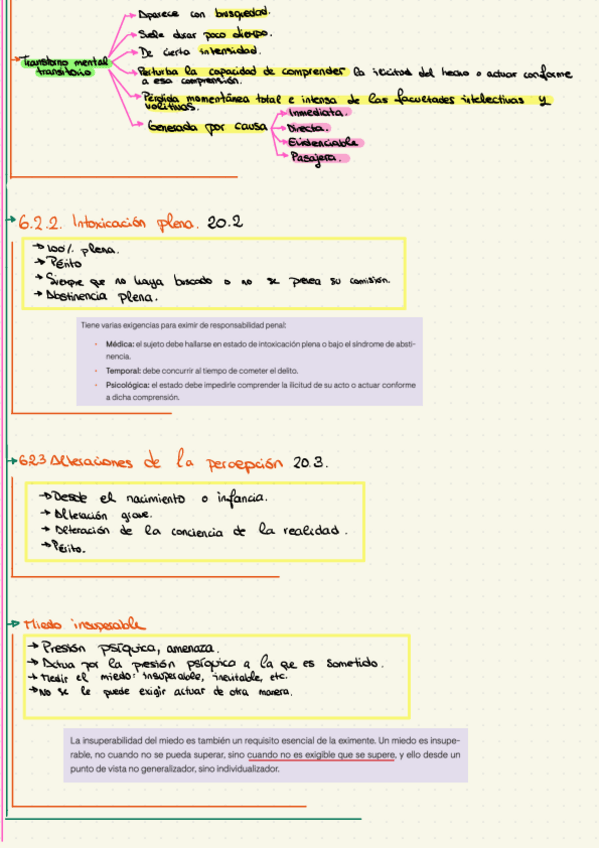 Aparece con brusquedad.
Suele durar poco tiempo.
De cierta intensidad.
Trastorno mental
transitorio
Perturba la capacidad de comprender la ilicitud del hecho o actuar conforme
a esa comprensión.
Pérdida momentánea total e intensa de las facultades intelectivas y
volitivas.
Generada por causa
Inmediata.
Directa.
Evidenciable
Pasajera.
6.2.2. Intoxicación plena. 20.2
100% plena.
Périto
Siempre que no haya buscado o no se prevea su comisión.
Abstinencia plena.
Tiene varias exigencias para eximir de responsabilidad penal:
• Médica: el sujeto debe hallarse en estado de intoxicación plena o bajo el síndrome de absti-
nencia.
• Temporal: debe concurrir al tiempo de cometer el delito.
• Psicológica: el estado debe impedirle comprender la ilicitud de su acto o actuar conforme
a dicha comprensión.
6.2.3 Alteraciones de la percepción 20.3.
Desde el nacimiento o infancia.
Alteración grave.
Alteración de la conciencia de la realidad.
Périto.
Miedo insuperable
Presión psíquica, amenaza.
Actua por la presión psíquica a la que es sometido.
Medir el miedo: insuperable, inevitable, etc.
No se le puede exigir actuar de otra manera.
La insuperabilidad del miedo es también un requisito esencial de la eximente. Un miedo es insupe-
rable, no cuando no se pueda superar, sino cuando no es exigible que se supere, y ello desde un
punto de vista no generalizador, sino individualizador.